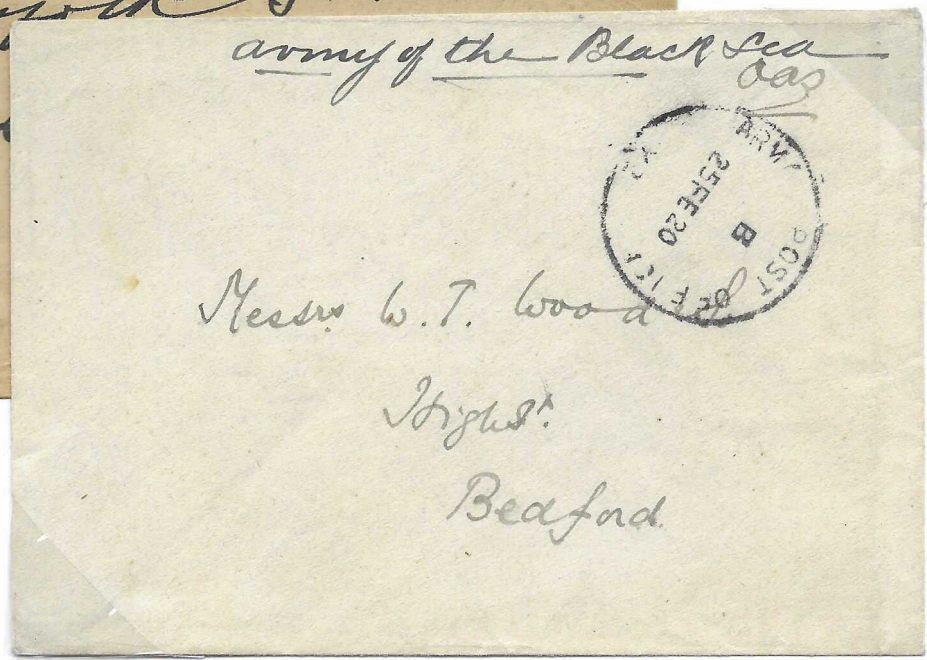 Army of the Black Sea
OAS
ARMY POST OFFICE
B
25 FE 20
Messrs W. T. Wood
High St.
Bedford